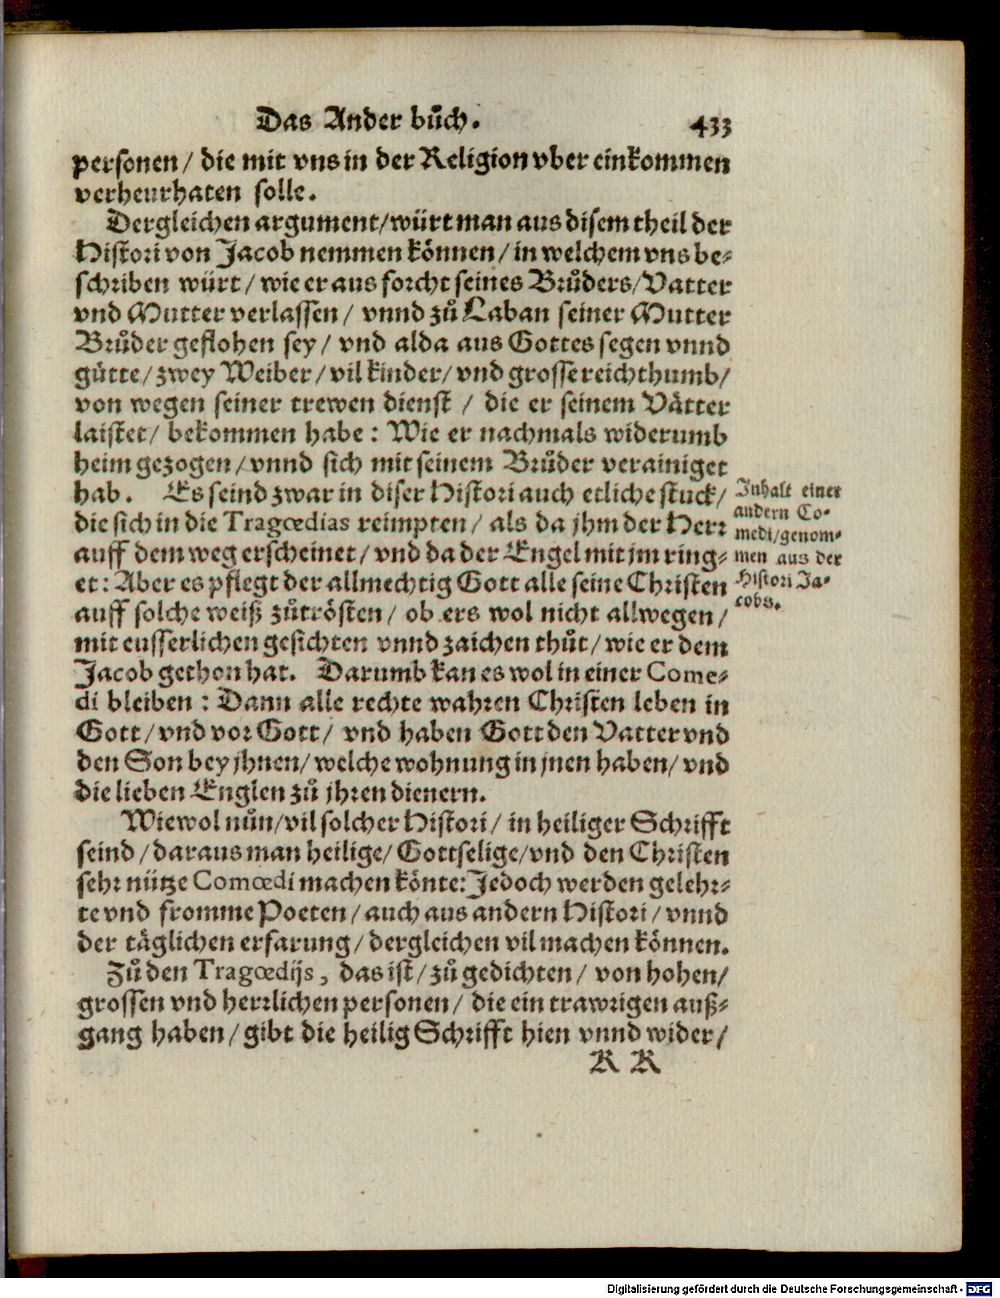 Das Ander bůch. 433
personen/ die mit vns in der Religion vber einkommen
verheurhaten solle.
Dergleichen argument/würt man aus disem theil der
Histori von Jacob nemmen können/ in welchem vns be-
schriben würt/ wie er aus forcht seines Brůders/Vatter
vnd Mutter verlassen/ vnnd zů Laban seiner Mutter
Brůder geflohen sey/ vnd alda aus Gottes segen vnnd
gütte/ zwey Weiber/ vil kinder/ vnd grosse reichthumb/
von wegen seiner trewen dienst / die er seinem Vätter
laistet/ bekommen habe : Wie er nachmals widerumb
heim gezogen/ vnnd sich mit seinem Brůder verainiget
hab. Es seind zwar in diser Histori auch etliche stuck/
die sich in die Tragœdias reimpten/ als da jhm der Herr
auff dem weg erscheinet/ vnd da der Engel mit jm ring-
et: Aber es pflegt der allmechtig Gott alle seine Christen
auff solche weiß zůtrösten/ ob ers wol nicht allwegen/
mit eusserlichen gesichten vnnd zaichen thůt/ wie er dem
Jacob gethon hat. Darumb kan es wol in einer Come-
di bleiben : Dann alle rechte wahren Christen leben in
Gott/ vnd vor Gott/ vnd haben Gott den Vatter vnd
den Son bey jhnen/ welche wohnung in jnen haben/ vnd
die lieben Englen zů jhren dienern.
Wiewol nůn/ vil solcher Histori/ in heiliger Schrifft
seind/ daraus man heilige/ Gottselige/ vnd den Christen
sehr nütze Comœdi machen könte: Jedoch werden gelehr-
te vnd fromme Poeten/ auch aus andern Histori/ vnnd
der täglichen erfarung/ dergleichen vil machen können.
Zů den Tragœdijs, das ist/ zů gedichten/ von hohen/
grossen vnd herrlichen personen/ die ein trawrigen auß-
gang haben/ gibt die heilig Schrifft hien vnnd wider/
R R
Inhalt einer
andern Co-
medi/genom-
men aus der
Histori Ja-
cobs.
Digitalisierung gefördert durch die Deutsche Forschungsgemeinschaft - DFG